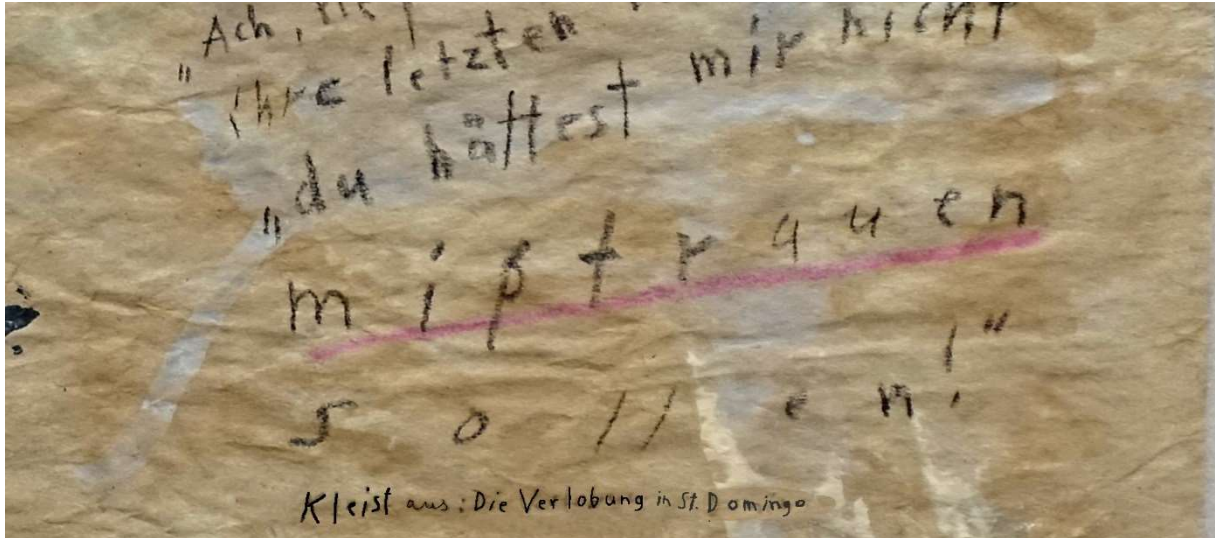 "Ach,
"ihre letzten
"du hättest mir nicht
mißtrauen
sollen!"
Kleist aus: Die Verlobung in St. Domingo